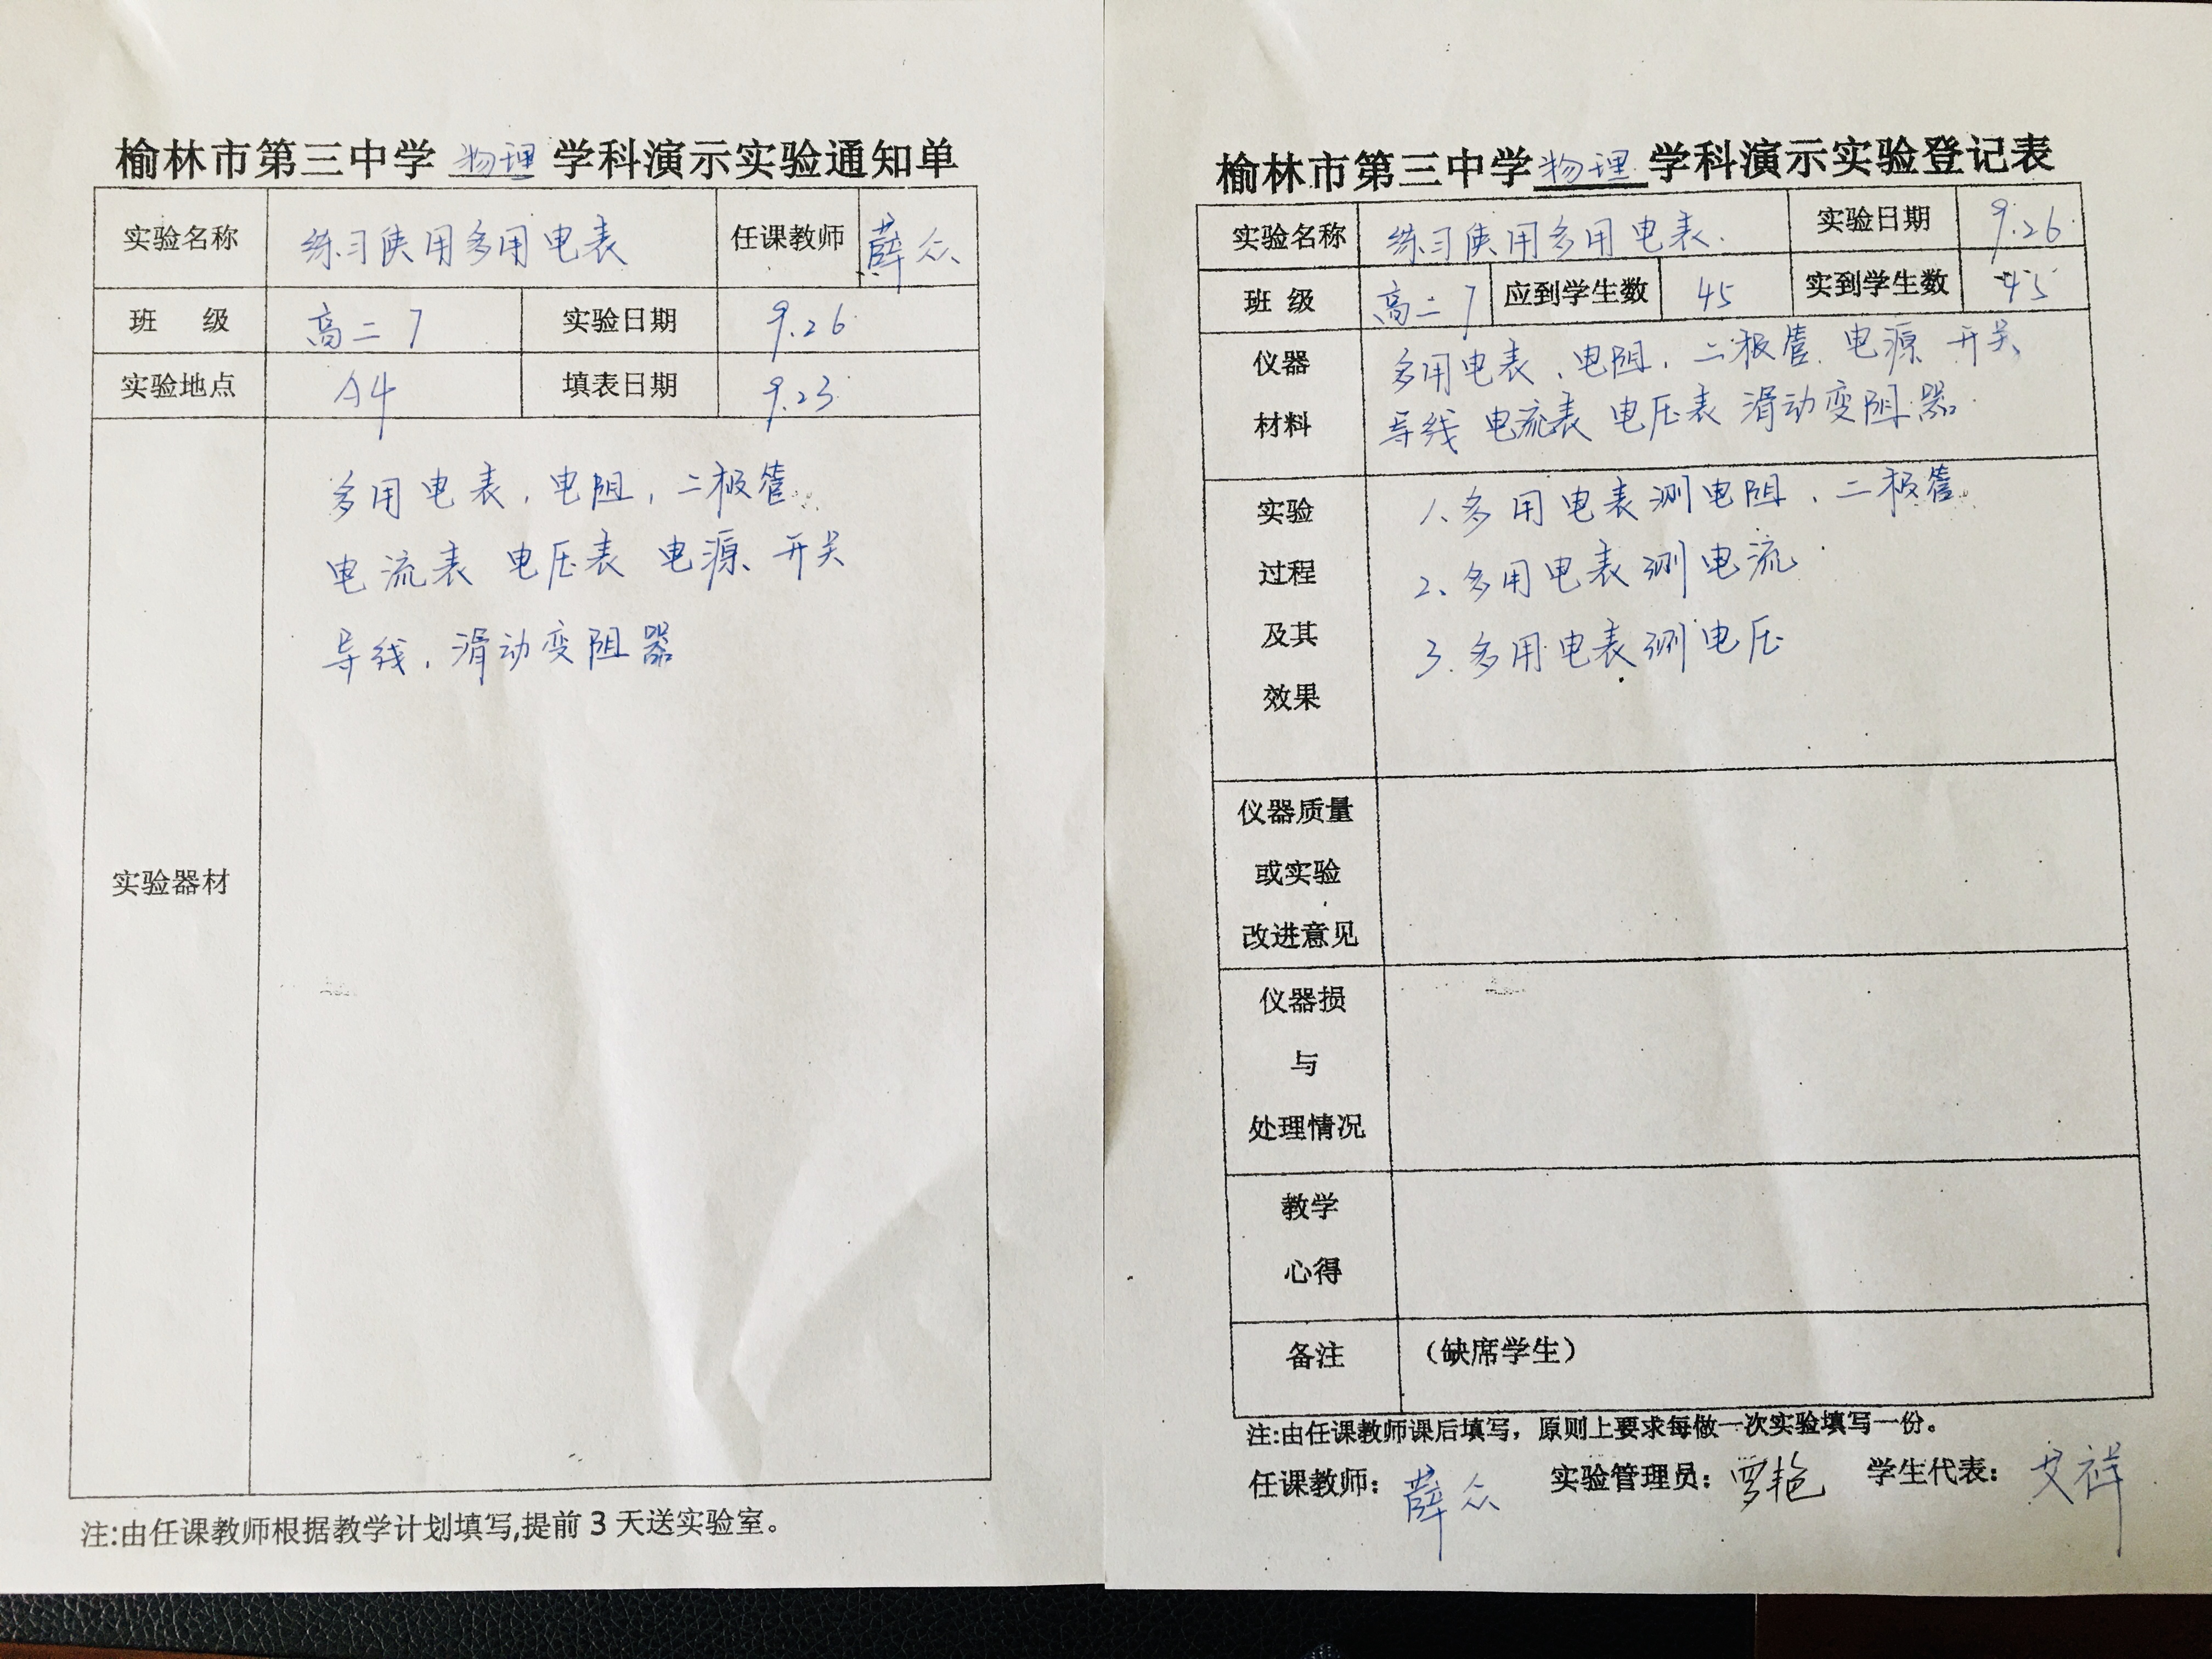 榆林市第三中学 物理 学科演示实验通知单
实验名称 练习使用多用电表 任课教师 薛众
班 级 高二7 实验日期 9.26
实验地点 A4 填表日期 9.23
实验器材
多用电表，电阻，二极管
电流表 电压表 电源 开关
导线，滑动变阻器
注:由任课教师根据教学计划填写,提前3天送实验室。
榆林市第三中学 物理 学科演示实验登记表
实验名称 练习使用多用电表. 实验日期 9.26
班 级 高二7 应到学生数 45 实到学生数 45
仪器
材料
多用电表、电阻，二极管 电源 开关
导线 电流表 电压表 滑动变阻器
实验
过程
及其
效果
1.多用电表测电阻、二极管
2、多用电表测电流
3.多用电表测电压
仪器质量
或实验
改进意见
仪器损
与
处理情况
教学
心得
备注 （缺席学生）
注:由任课教师课后填写，原则上要求每做一次实验填写一份。
任课教师: 薛众 实验管理员: 罗艳 学生代表: 艾祥